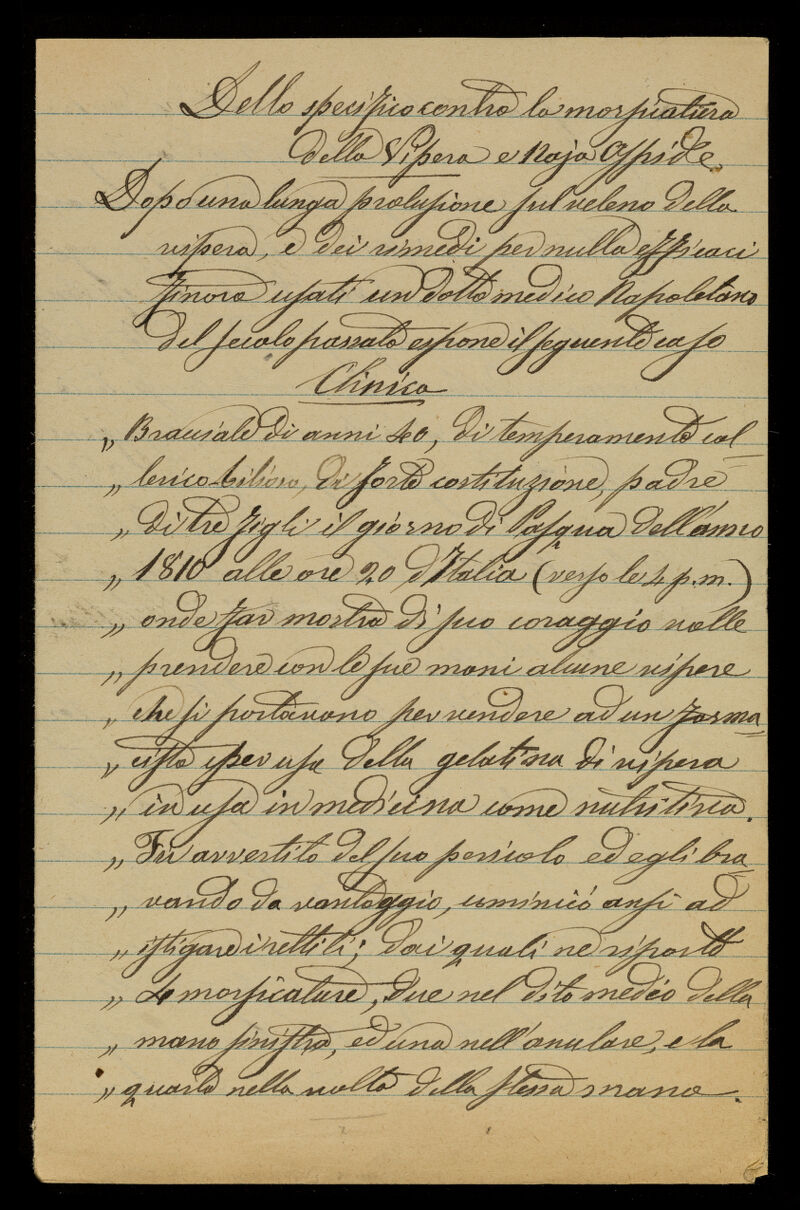 Dello specifico contro la morsicatura
della Vipera e Naja Aspide.
Dopo una lunga prolusione sul veleno della
vipera, e dei rimedi per nulla efficaci
finora usati un dotto medico Napoletano
del secolo passato espone il seguente caso
Clinico
„ di anni 40, di temperamento col
„ lerico-bilioso, di forte costituzione, padre
„ di tre figli il giorno di Pasqua dell'anno
„ 1810 alle ore 20 d'Italia (verso le 4 p.m.)
„ onde far mostra di suo coraggio volle
„ prendere con le sue mani alcune vipere
„ che si portavano per vendere ad un farma=
„ cista per uso della gelatina di vipera
„ in uso in medicina come nutritiva.
„ Fu avvertito del suo pericolo ed egli bra
„ vando da vantaggio, cominciò ansi ad
„ istigare i rettili; dai quali ne riportò
„ 4 morsicature, due nel dito medio della
„ mano sinistra, ed una nell'anulare, e la
„ quarta nella volta della stessa mano.